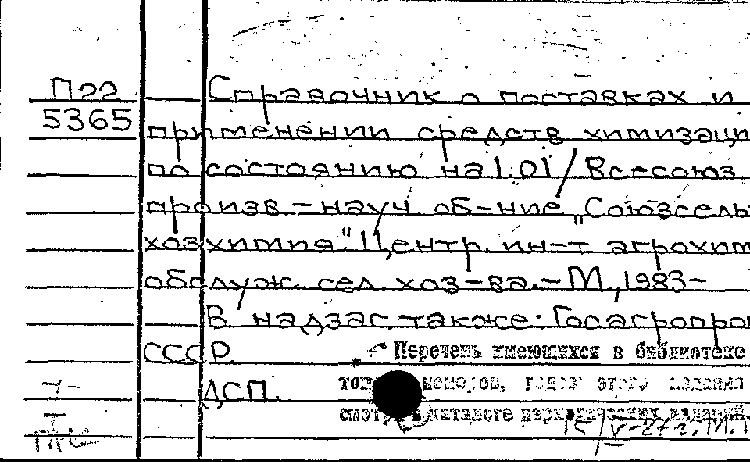 П22 Справочник о поставках и
5365 применении средств химизаци
по состоянию на 1.01/Всесоюз
произв.-науч. об-ние "Союзсель
хозхимия". Центр. ин-т агрохим
обслуж. сел. хоз-ва.-М., 1983-
В надзаг. также: Госагропро
СССР Перечень имеющихся в библиотеке
ДСП. томов, номеров, годов этого издания
смотри в каталоге периодических изданий.